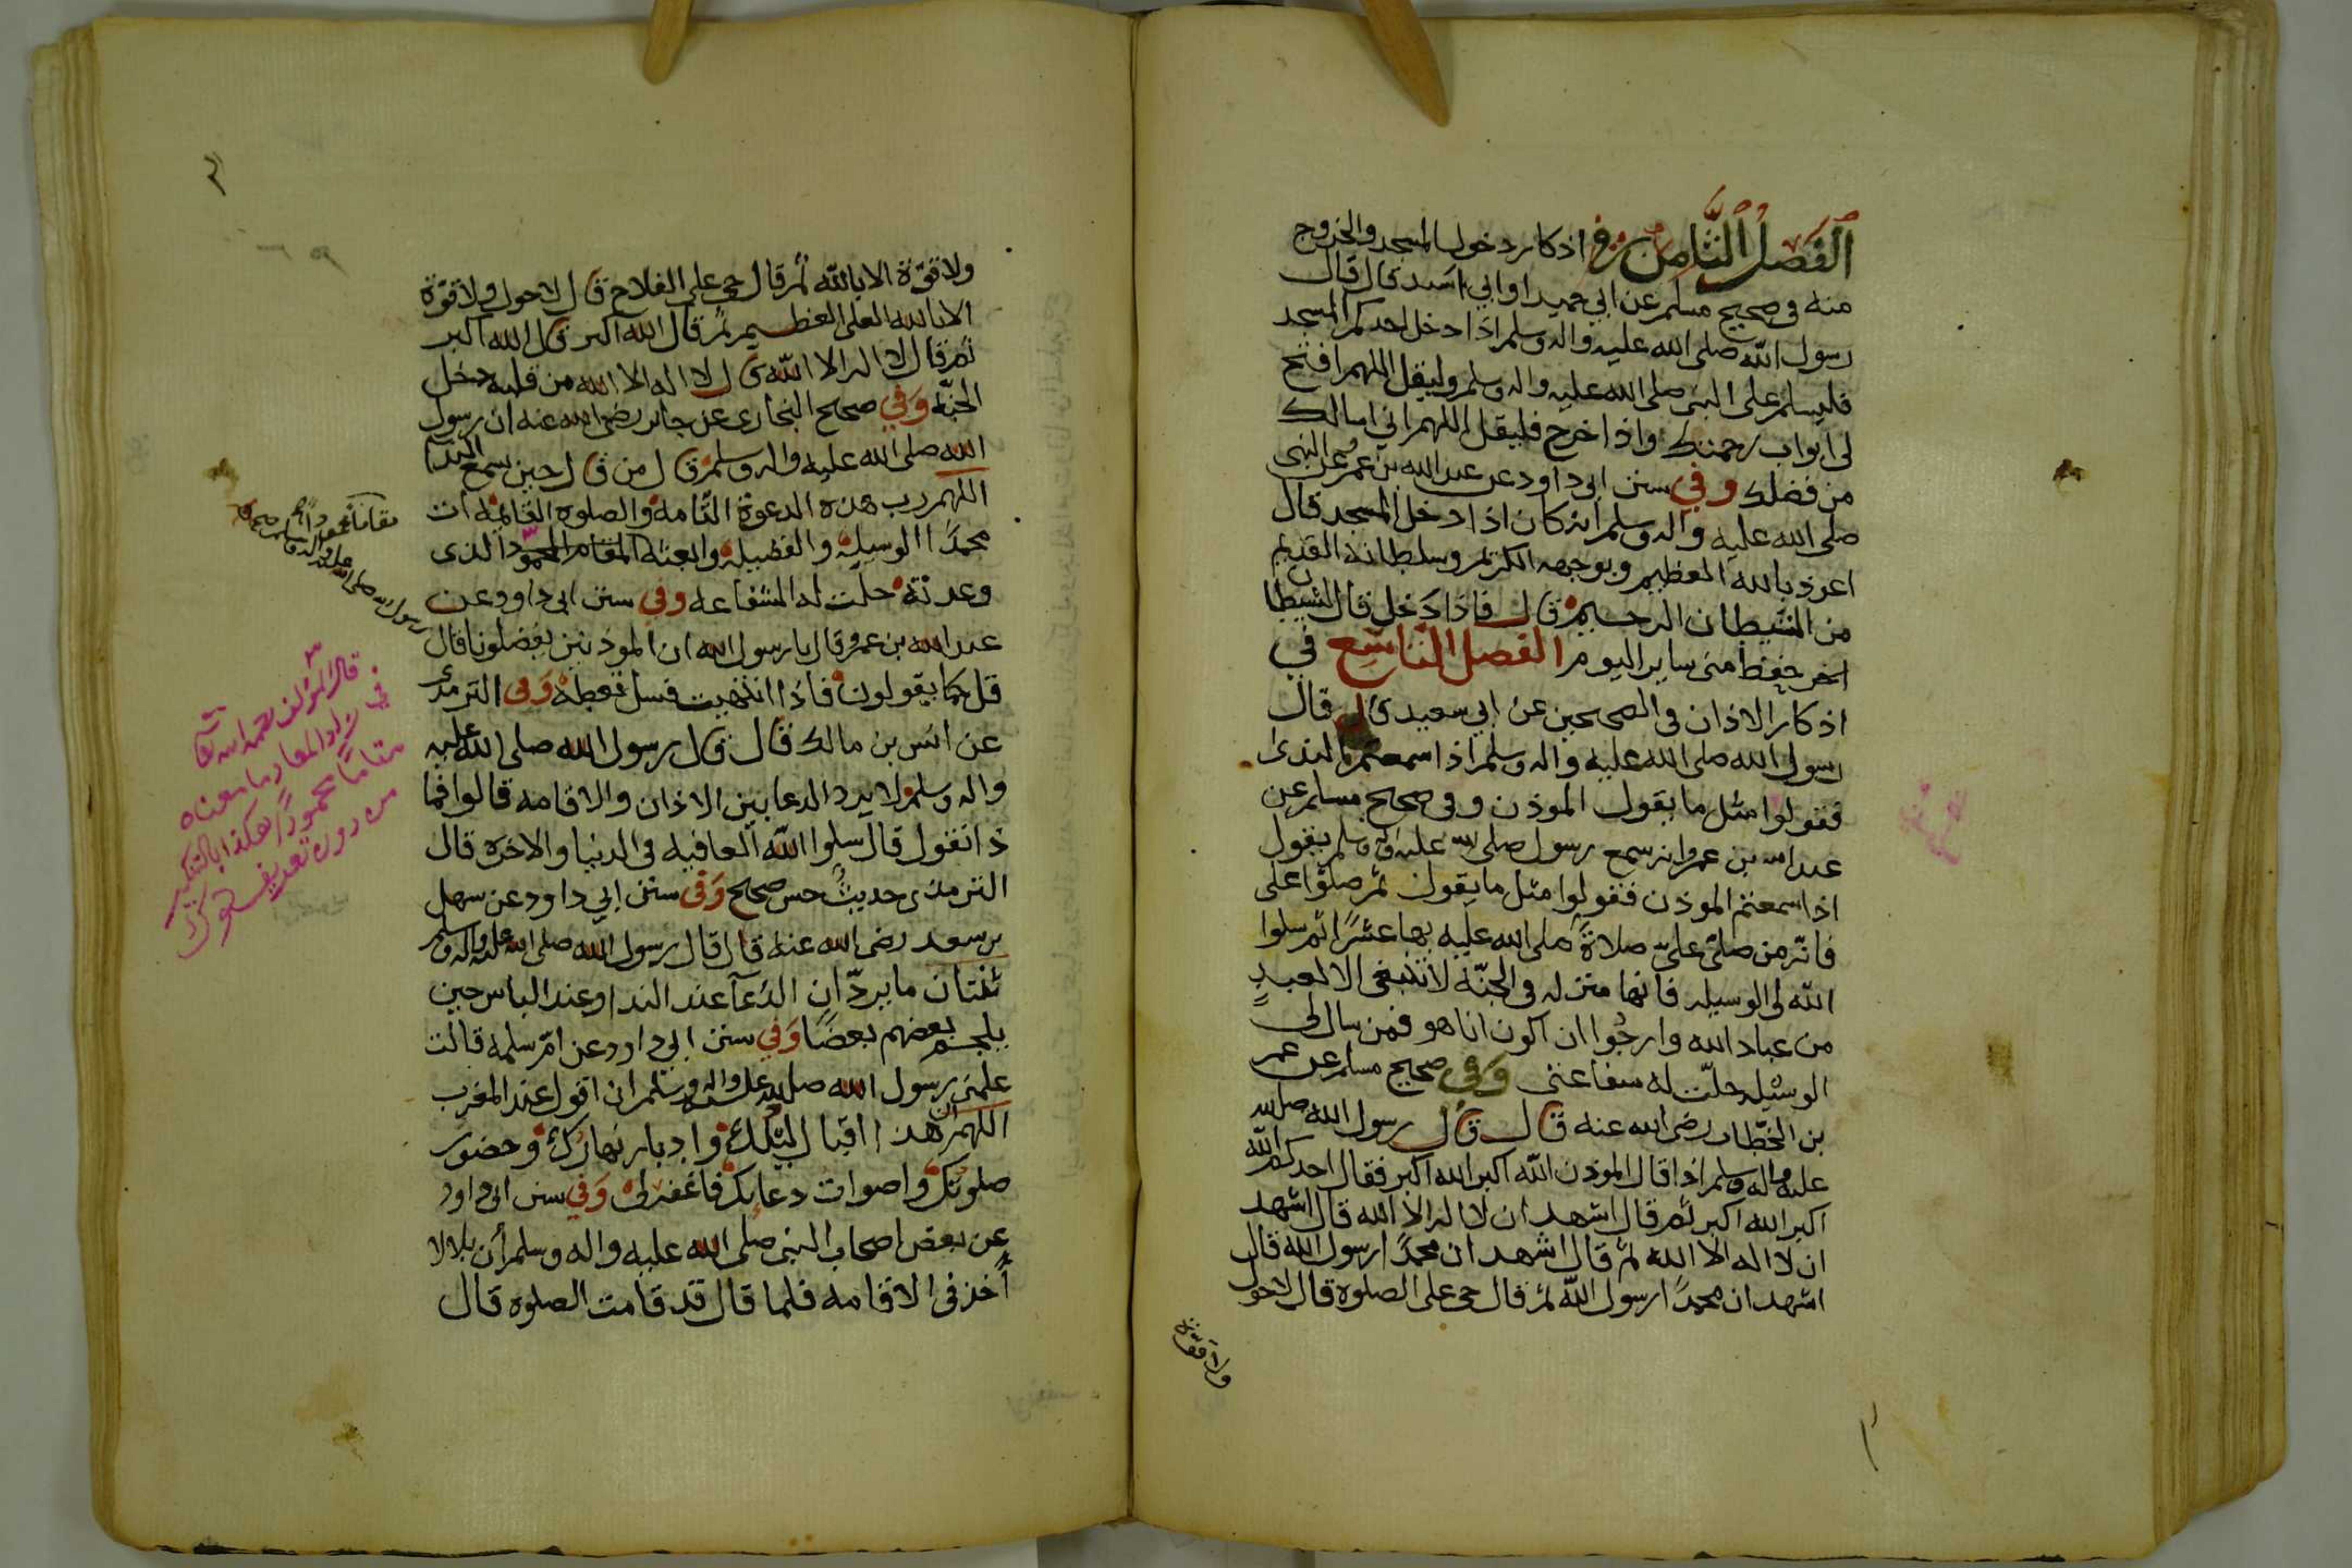 الفصل الثامن في اذكار دخول المسجد والخروج
منه في صحيح مسلم عن ابي حميد او ابي اسيد قال قال
رسول الله صلى الله عليه واله وسلم اذا دخل احدكم المسجد
فليسلم على النبي صلى الله عليه واله وسلم وليقل اللهم افتح
لي ابواب رحمتك واذا خرج فليقل اللهم اني اسالك
من فضلك وفي سنن ابي داود عن عبد الله بن عمر عن النبي
صلى الله عليه واله وسلم انه كان اذا دخل المسجد قال
اعوذ بالله العظيم وبوجهه الكريم وسلطانه القديم
من الشيطان الرجيم قال فاذا دخل قال الشيطان
حفظ مني ساير اليوم الفصل التاسع في
اذكار الاذان في الصحيحين عن ابي سعيد قال قال
رسول الله صلى الله عليه واله وسلم اذا سمعتم الندى
فقولوا مثل ما يقول الموذن وفي صحيح مسلم عن
عبد الله بن عمر انه سمع رسول صلى الله عليه واله وسلم يقول
اذا سمعتم الموذن فقولوا مثل ما يقول ثم صلوا على
فانه من صلى علىّ صلاة صلى الله عليه بها عشرًا ثم سلوا
الله لي الوسيله فانها منزله في الجنّة لا تنبغي الا لعبدٍ
من عباد الله وارجوا ان اكون انا هو فمن سال لي
الوسيله حلّت له شفاعتي وفي صحيح مسلم عن عمر
بن الخطاب رضي الله عنه قال قال رسول الله صلى الله
عليه واله وسلم اذا قال الموذن الله اكبر الله اكبر فقال احدكم الله
اكبر الله اكبر ثم قال اشهد ان لا اله الا الله قال اشهد
ان لا اله الا الله ثم قال اشهد ان محمدًا رسول الله قال
اشهد ان محمدًا رسول الله ثم قال حي على الصلوة قال لا حول
ولا قوة
ولا قوّة الا بالله ثم قال حي على الفلاح قال لا حول ولا قوّة
الا بالله العلي العظيم ثم قال الله اكبر قال الله اكبر
ثم قال لا اله الا الله قال لا اله الا الله من قلبه دخل
الجنّة وفي صحيح البخاري عن جابر رضي الله عنه ان رسول
الله صلى الله عليه واله وسلم قال من قال حين سمع الندا
اللهم رب هذه الدعوة التامه والصلوه القائمه ات
محمدًا الوسيله والفضيله وابعثه المقام المحمود الذي
وعدته حلّت له الشفاعه وفي سنن ابي داود عن
عبد الله بن عمرو قال يا رسول الله ان الموذنين يفضلونا قال
قل كما يقولون فاذا انتهيت فسل تعطه وفي الترمذي
عن انس بن مالك قال قال رسول الله صلى الله عليه
واله وسلم لا يرد الدعا بين الاذان والاقامه قالوا فما
ذا نقول قال سلوا الله العافيه في الدنيا والاخره قال
الترمذي حديثٌ حسن صحيح وفي سنن ابي داود عن سهل
بن سعد رضي الله عنه قال قال رسول الله صلى الله عليه واله وسلم
ثنتان ما يردّان الدعآ عند الندا وعند الباس حين
يلجم بعضهم بعضًا وفي سنن ابي داود عن امّ سلمه قالت
علمني رسول الله صلى الله عليه واله وسلم ان اقول عند المغرب
اللهم ان هذا اقبال ليلك وادبار نهارك وحضور
صلوتك واصوات دعايك فاغفر لي وفي سنن ابي داود
عن بعض اصحاب النبي صلى الله عليه واله وسلم أن بلالا
أخذ في الاقامه فلما قال قد قامت الصلوه قال
مقاما محمودا
قال المولف رحمه الله تعا
في زاد المعاد ما معناه
مقامًا محمودًا هكذا بالتنكير
من دون تعريف